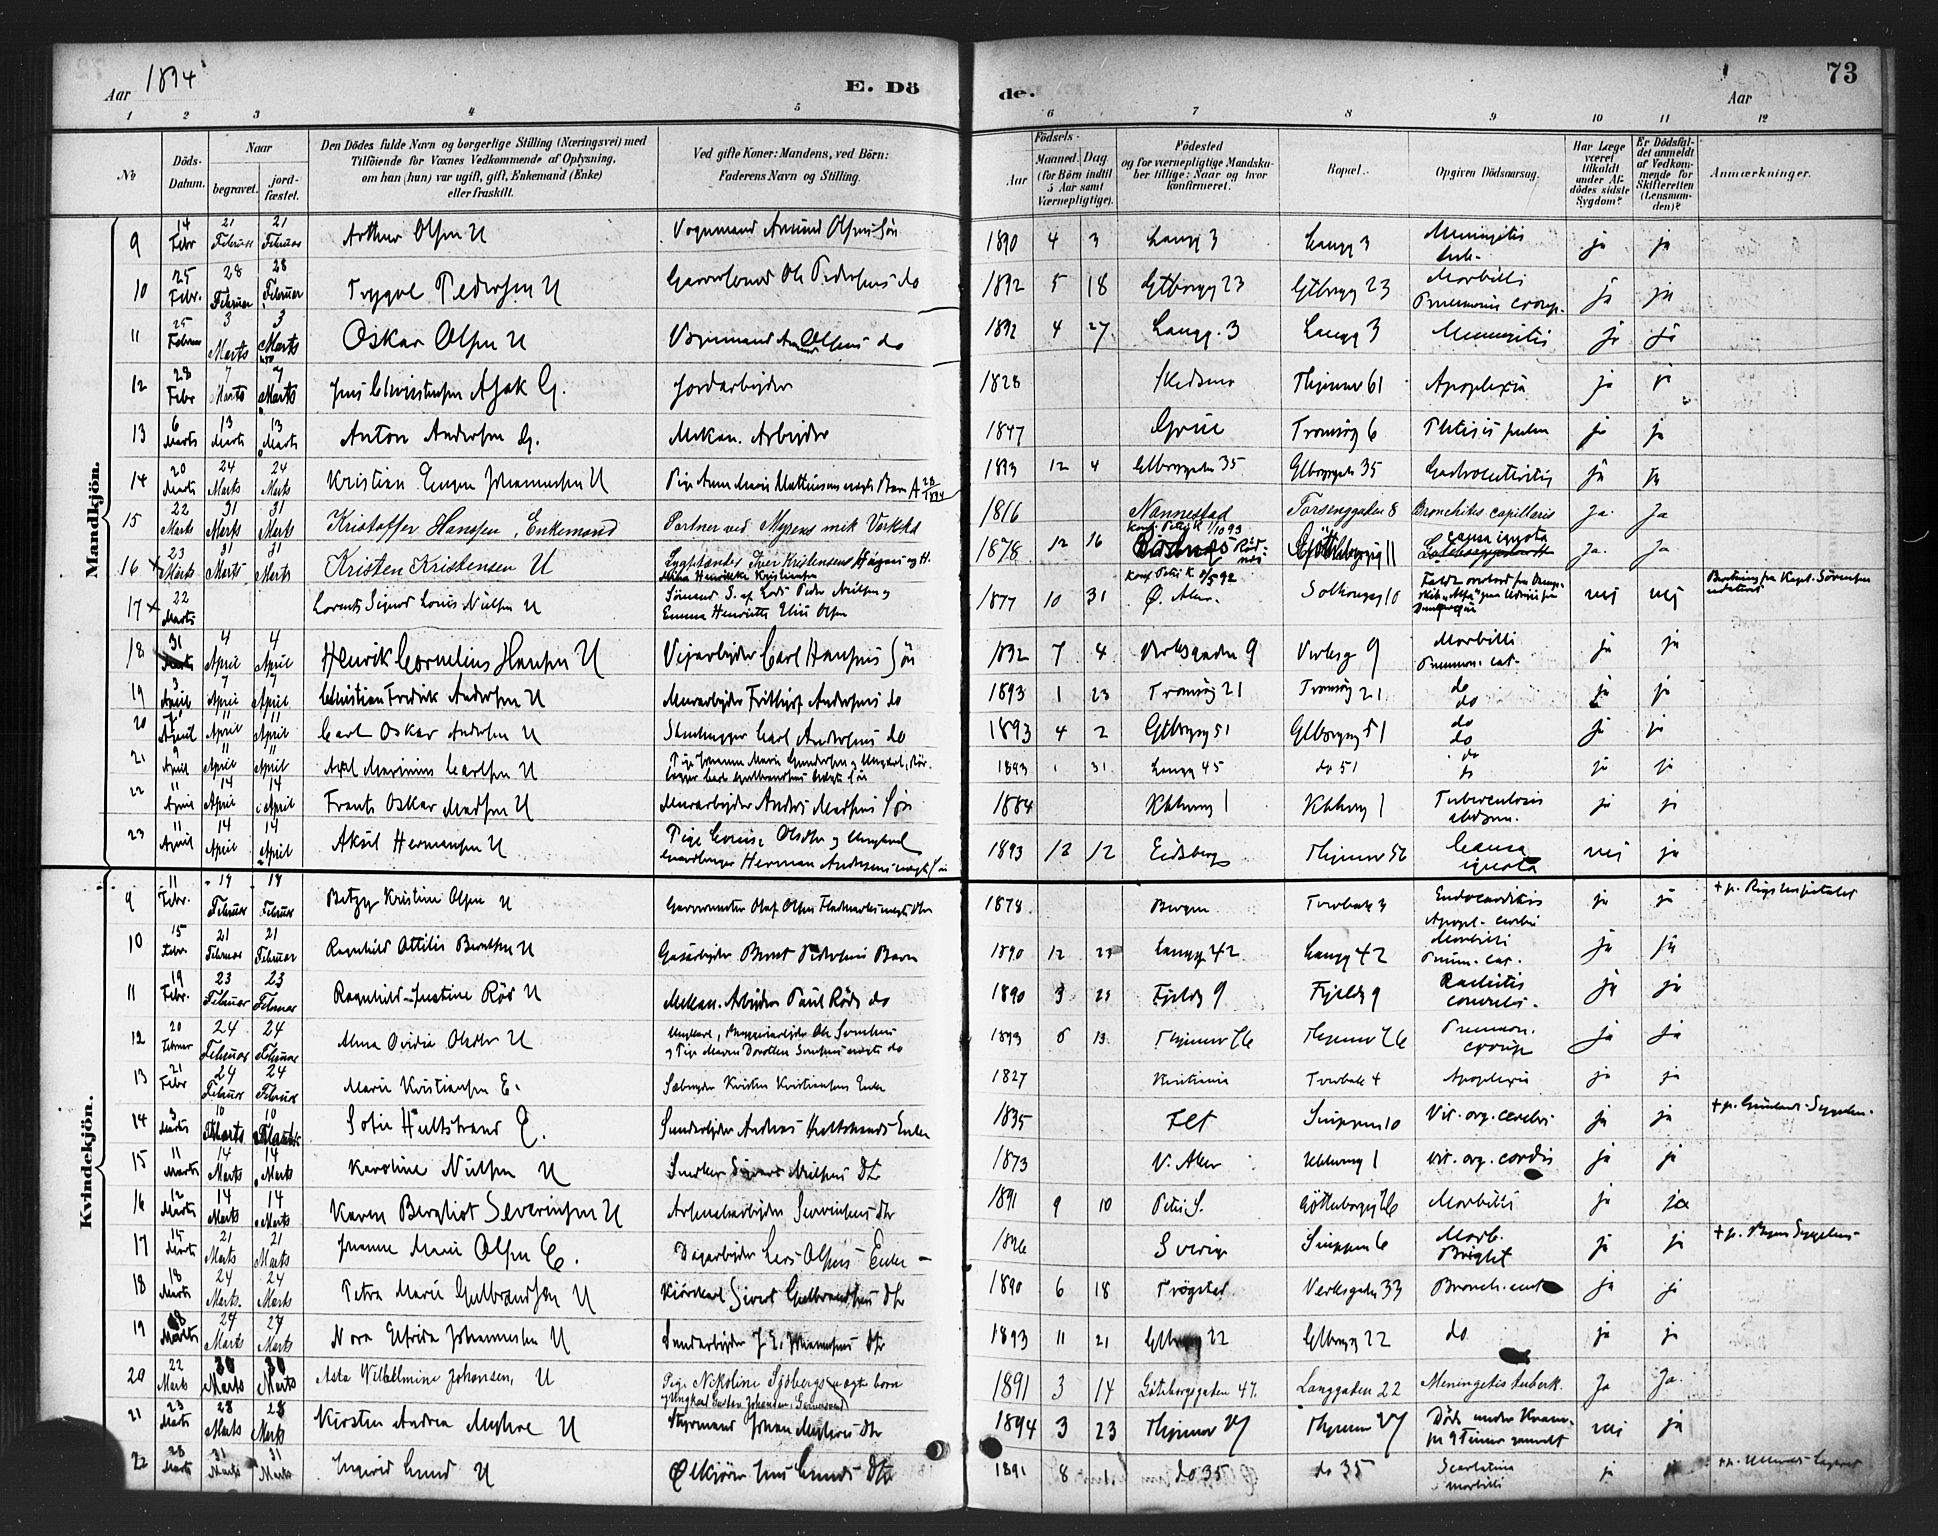 Aar 1894
E. Dö
de.
Aar
73
1 2 3 4 5 6 7 8 9 10 11 12
No
Döds-Datum.
Naar
begravet.
jord-fæstet.
Den Dödes fulde Navn og borgerlige Stilling (Næringsvei) med
Tilföiende for Voxnes Vedkommende af Oplysning,
om han (hun) var ugift, gift, Enkemand (Enke)
eller fraskilt.
Ved gifte Koner: Mandens, ved Börn:
Faderens Navn og Stilling.
Födsels-
Aar
Maaned. Dag.
(for Börn indtil
5 Aar samt
Værnepligtige).
Födested
og for værnepligtige Mandska-
ber tillige: Naar og hvor
konfirmeret.
Bopæl.
Opgiven Dödsaarsag.
Har Læge
været
tilkaldt
under Af-
dödes sidste
Sygdom?
Er Dödsfal-
det anmeldt
af Vedkom-
mende for
Skifteretten
(Lensman-
den)?
Anmærkninger.
Mandkjön.
9 14 Febr 21 Februar 21 Februar Arthur Olsen U Vognmand Amund Olsens Sön 1890 4 3 Langg 3 Langg 3 Meningitis tub. ja ja
10 25 Febr. 28 Februar 28 Februar Trygve Pedersen U Garversvend Ole Pedersens do 1892 5 18 Gtborgg 23 Gtborgg 23 Morbilli Pneumonia croup. ja ja
11 25 Februar 3 Marts 3 Marts Oskar Olsen U Vognmand Amund Olsens do 1892 4 27 Langg. 3 Langg 3 Meningitis ja ja
12 28 Febr 7 Marts 7 Marts Jens Christensen Asak G. Jordarbejder 1828 Skedsmo Thjemsv 61 Apoplexia ja ja
13 6 Marts 13 Marts 13 Marts Anton Andersen G. Mekan. Arbejder 1847 Grue Tromsög 6 Phtisis pulm ja ja
14 20 Marts 24 Marts 24 Marts Kristian Eugen Johannesen U Pige Anne Marie Mathiesens uægte Barn 1893 12 4 Gtborggaten 35 Gtborggaten 35 Gastroenteritis ja ja
15 22 Marts 31 Marts 31 Marts Kristoffer Hanssen, Enkemand Portner ved Myrens mek Verksted 1816 Nannestad Torsenggaden 8 Bronchitis capillaris Ja. Ja
16 x 23 Marts 31 Marts 31 Marts Kristen Kristensen U Lygttænder Iver Kristensens Högnes og H. Mina Henrikke Kristiansen 1878 12 16 Konf. Petri K 1/10 93 Rödnes Götteborgg 11 causa ignota Ja. Ja
17 x 22 Marts Lorents Sigurd Louis Nielsen U Sömand S. af Peder Nielsen og Emma Henriette Elise Olsen 1877 10 31 Konf Petri K 8/5 92 Ö. Aker. Solhougg 10 Faldt overbord fra nej nej Beretning fra Kapt. Sörensen
18 31 Marts 4 April 4 April Henrik Cornelius Hansen U Vejarbejder Carl Hansens Sön 1892 7 4 Verksgaden 9 Verksg 9 Morbilli Pneumon. cat. ja ja
19 3 April 7 April 7 April Christian Fredrik Andersen U Murarbejder Frithjof Andersens do 1893 1 23 Tromsög 21 Tromsög 21 do do ja ja
20 7 April 11 April 11 April Carl Oskar Andersen U Stenhugger Carl Andersens do 1893 4 2 Gtborgg 51 Gtborgg 51 do do ja ja
21 9 April 11 April 11 April Axel Marinius Carlsen U Pige Johanne Marie Gundersen og Ungkarl, Rör- 1893 1 31 Langg 45 do 51 do do ja ja
22 11 April 14 April 14 April Frants Oskar Madsen U Murarbejder Anders Madsens Sön 1884 Kbhavng 1 Kbhavng 1 Tuberculosis abdom. ja ja
23 11 April 14 April 14 April Aksil Hermansen U Pige Lovise Olsdtr og Ungkarl Herman Andersens uægte Sön 1893 12 12 Eidsberg Thjemsv 56 Causa ignota nej ja
Kvindekjön.
9 11 Febr. 14 Februar 14 Februar Betzy Kristine Olsen U Garvermester Olaf Olsen uægte Dtr 1878 Bergen Torvbak 3 Endocarditis Apopl. cerebri ja ja + p. Rigshospitalet
10 15 Febr 21 Februar 21 Februar Ragnhild Ottilie Berntsen U Gasarbejder Bernt Pedersens Barn 1890 12 23 Langg 42 Langg 42 Morbilli Pneum. cat. ja ja
11 19 Febr. 23 Februar 23 Februar Ragnhild Justine Röd U Mekan. Arbejder Paul Röds do 1890 3 21 Fjeldg 9 Fjeldg 9 Rachitis convuls. ja ja
12 20 Februar 24 Februar 24 Februar Alma Ovidia Olsdtr U Ungkarl, Bryggeriarbejder Ole Svendsens og Pige Maren Dorothea uægte do 1893 6 13 Thjemsv 76 Thjemsv 76 Pneumon. croup ja ja
13 21 Febr 24 Februar 24 Februar Marie Kristiansen E. Kristen Kristiansens Enke 1827 Kristiania Torvbak 4 Apoplexia ja ja
14 3 Marts 10 Marts 10 Marts Sofie Hultstrand E. Andreas Hultstrands Enke 1835 Fet Sinpven 10 Vit. org. cerebri ja ja
15 11 Marts 14 Marts 14 Marts Karoline Nielsen U Snedker Nielsens Dtr 1873 V. Aker Kbhavng 1 vit. org. cordis ja ja
16 12 Marts 14 Marts 14 Marts Karen Bergliot Severinsen U Arsenalsarbejder Severinsens Dtr 1891 9 10 Petri S. Götteborgg 26 Morbilli ja ja
17 15 Marts 21 Marts 21 Marts Johanne Marie Olsen E. Dagarbejder Lars Olsens Enke 1826 Sverige Sinpven 6 Morb. Brightt ja ja
18 18 Marts 24 Marts. 24 Marts Petra Marie Gulbrandsen U Kjörekarl Sivert Gulbrandsens Dtr 1890 6 18 Trögstad Verksgaden 33 Bronch. ja ja
19 18 Marts 24 Marts 24 Marts Nora Elfrida Johannesen U J. E. Johannesens Dtr 1893 11 21 Gtborgg 22 Gtborgg 22 do ja ja
20 22 Marts 30 Marts 30 Marts Asta Vilhelmine Johansen, U Pige Nikoline Sjöbergs uægte born 1891 3 14 Göteborgsgaden 47. Langgaden 22 Meningetis tuberk. Ja Ja.
21 23 Marts 28 Marts 28 Marts Kirsten Andrea Myhre U Styrmand Johan Myhres Dtr 1894 3 23 Thjemsv 27 Thjemsv 27 Död under 9 Timer gammelt nej ja
22 28 Marts 31 Marts 31 Marts Ingrid Lund U Ölkjörer Jens Lunds Dtr 1891 8 do 35 do 35 Scarlatina morbilli ja ja